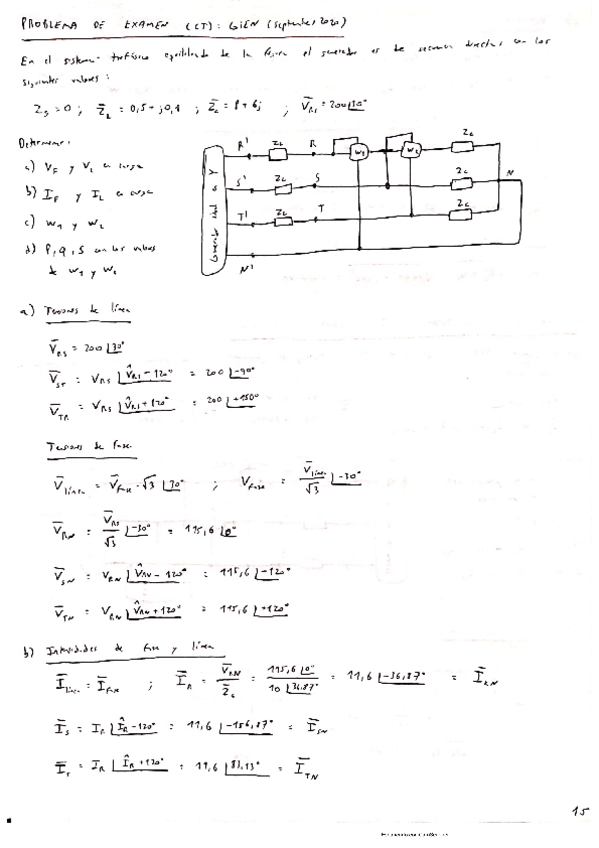 PROBLEMA DE EXAMEN (CT): GIEN (septiembre 2020)
En el sistema trifásico equilibrado de la figura el generador es de secuencia directa con los
siguientes valores:
Zg = 0 ; Z̄L = 0,5 + j0,1 ; Z̄c = 8 + 6j ; V̄RS = 200|30°
Determinar:
a) VF y VL en carga
b) IF y IL en carga
c) W1 y W2
d) P, Q, S con los valores
de W1 y W2
R' ZL R W1 W2 Zc
S' ZL S Zc N
T' ZL T Zc
N'
a) Tensiones de línea
V̄RS = 200|30°
V̄ST = VRS |V̂RS - 120° = 200|-90°
V̄TR = VRS |V̂RS + 120° = 200|+150°
Tensiones de fase
V̄línea = V̄fase · √3 |30° ; V̄fase = V̄línea/√3 |-30°
V̄RN = V̄RS/√3 |-30° = 115,6|0°
V̄SN = VRN |V̂RN - 120° = 115,6|-120°
V̄TN = VRN |V̂RN + 120° = 115,6|+120°
b) Intensidades de fase y línea
Īlínea = Īfase ; ĪR = V̄RN/Z̄c = 115,6|0°/10|36,87° = 11,6|-36,87° = ĪRN
ĪS = IR |ÎR - 120° = 11,6|-156,87° = ĪSN
ĪT = IR |ÎR + 120° = 11,6|83,13° = ĪTN
15